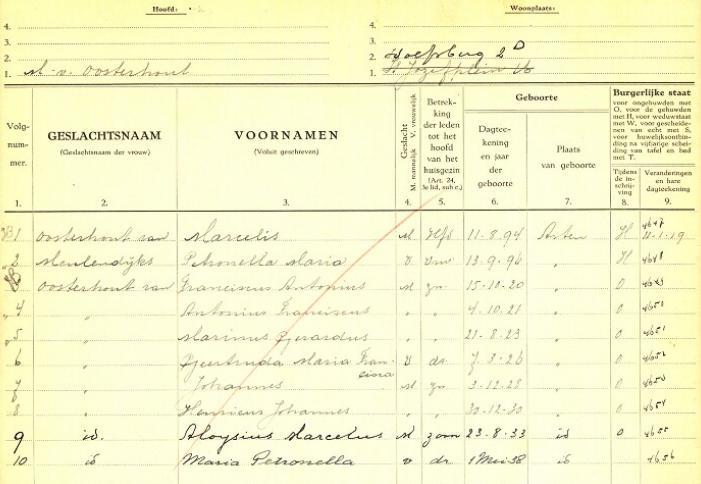 Hoofd:
Woonplaats:
4.
3.
2.
1. M. v. Oosterhout
4.
3.
2. Wolfsberg 2 D
1. St Jozefplein
Volgnummer. 1.
GESLACHTSNAAM (Geslachtsnaam der vrouw). 2.
VOORNAMEN (Voluit geschreven) 3.
Geslacht M. mannelijk V. vrouwelijk 4.
Betrekking der leden tot het hoofd van het huisgezin (Art. 24, 3e lid, sub c.) 5.
Geboorte
Dagteekening en jaar der geboorte 6.
Plaats van geboorte 7.
Burgerlijke staat
voor ongehuwden met O, voor de gehuwden met H, voor weduwstaat met W, voor gescheidenen van echt met S, voor huwelijksontbinding na vijfjarige scheiding van tafel en bed met T.
Tijdens de inschrijving 8.
Veranderingen en hare dagteekening 9.
1 Oosterhout van Marcelis M Hfd 11-8-94 Asten H 4647 11-1-19
2 Meulendijks Petronella Maria V Vrw 13-9-96 " H 4648
3 Oosterhout van Franciscus Antonius M zn 15-10-20 " O 4649
4 " Antonius Franciscus " " 4-10-21 " O 4650
5 " Marinus Gerardus " " 21-8-23 " O 4651
6 " Geertruda Maria Francisca V dr 7-3-26 " O 4652
7 " Johannes M zn 3-12-28 " O 4653
8 " Henricus Johannes " " 30-12-30 " O 4654
9 id. Aloysius Marcelus M zoon 23-8-33 id O 4655
10 id Maria Petronella V dr 1 Mei 38 id 4656